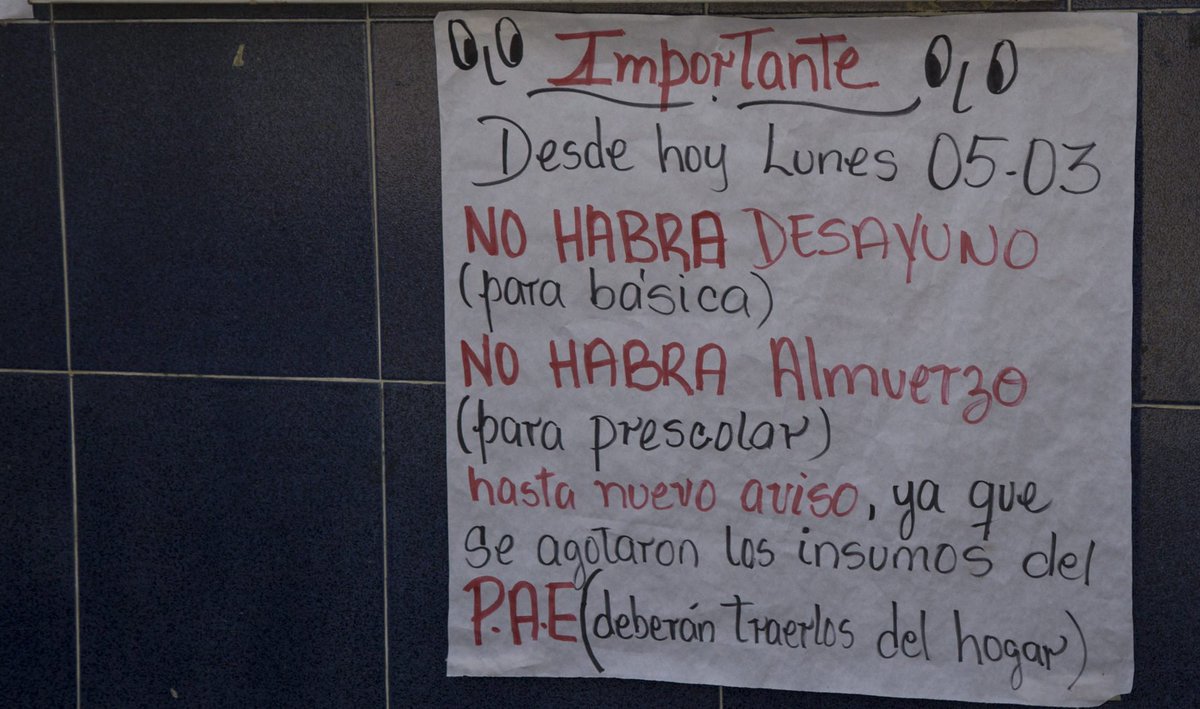 Importante
Desde hoy Lunes 05-03
NO HABRA DESAYUNO
(para básica)
NO HABRA Almuerzo
(para prescolar)
hasta nuevo aviso, ya que
se agotaron los insumos del
P.A.E (deberán traerlos del hogar)